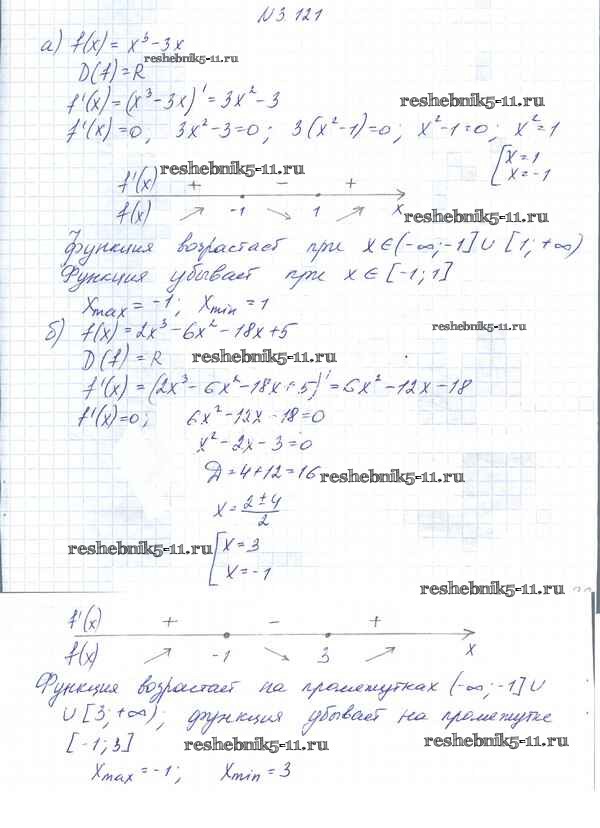 N 3.121
а) f(x) = x³-3x
reshebnik5-11.ru
D(f) = R
f'(x) = (x³-3x)' = 3x²-3
reshebnik5-11.ru
f'(x)=0, 3x²-3=0; 3(x²-1)=0; x²-1=0; x²=1
[x=1
x=-1
reshebnik5-11.ru
f'(x) + - +
f(x) ↗ -1 ↘ 1 ↗ x
reshebnik5-11.ru
Функция возрастает при x∈(-∞;-1]∪[1;+∞)
Функция убывает при x∈[-1;1]
Xmax = -1; Xmin = 1
reshebnik5-11.ru
б) f(x)=2x³-6x²-18x+5
D(f) = R
reshebnik5-11.ru
f'(x) = (2x³-6x²-18x+5)' = 6x²-12x-18
f'(x)=0; 6x²-12x-18=0
x²-2x-3=0
Д=4+12=16
reshebnik5-11.ru
x = (2±4)/2
reshebnik5-11.ru
[x=3
x=-1
reshebnik5-11.ru
f'(x) + - +
f(x) ↗ -1 ↘ 3 ↗ x
Функция возрастает на промежутках (-∞;-1]∪
∪[3;+∞); функция убывает на промежутке
[-1;3]
reshebnik5-11.ru
reshebnik5-11.ru
Xmax = -1; Xmin = 3